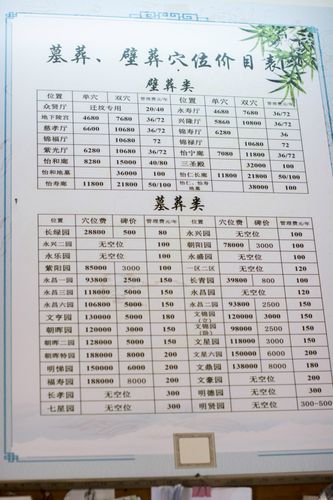 墓葬、壁葬穴位价目表
壁葬类
位置 单穴 双穴 管理费元/年 位置 单穴 双穴 管理费元/年
众贤厅 迁坟专用 20/40 永寿厅 4680 7680 36/72
地下陵宫 4680 7680 36/72 兴隆厅 5860 10800 36/72
慈孝厅 6600 10800 36/72 锦寿厅 6280 36
锦福厅 10680 72 锦禄厅 10680 72
紫光厅 6280 10800 36/72 怡宁廊 7080 11800 36/72
怡和廊 8280 15000 40/80 三圣殿 32000 100
怡和地墓 36000 100 怡仁长廊 11800 21800 50/100
怡寿廊 11800 21800 50/100 怡仁、怡寿地墓 38000 100
墓葬类
位置 穴位费 碑价 管理费元/年 位置 穴位费 碑价 管理费元/年
长绿园 28800 500 80 永兴园 无空位 100
永兴二园 无空位 100 朝阳园 78000 3000 100
永乐园 无空位 100 永盛园 无空位 100
紫阳园 85000 3000 100 一区二区 无空位 120
永昌一园 93800 2500 150 长青园 39800 800 100
永昌三园 118000 5000 150 永昌园 无空位 120
永昌六园 106800 5000 150 永昌二园 93800 2500 150
文亨园 130000 5000 180 文锦园(立) 120000 3000 150
朝晖园 120000 3000 150 文锦园(卧) 98000 2500 150
朝晖二园 128000 5000 150 文星园 118000 3000 150
朝晖特园 188000 8000 200 文星六园 150000 6000 200
明悌园 150000 6000 200 文鼎园 138000 8000 180
福寿园 188000 8000 200 文豪园 无空位 200
长孝园 无空位 300 明德园 无空位 200
七星园 无空位 300 明贤园 无空位 300-500